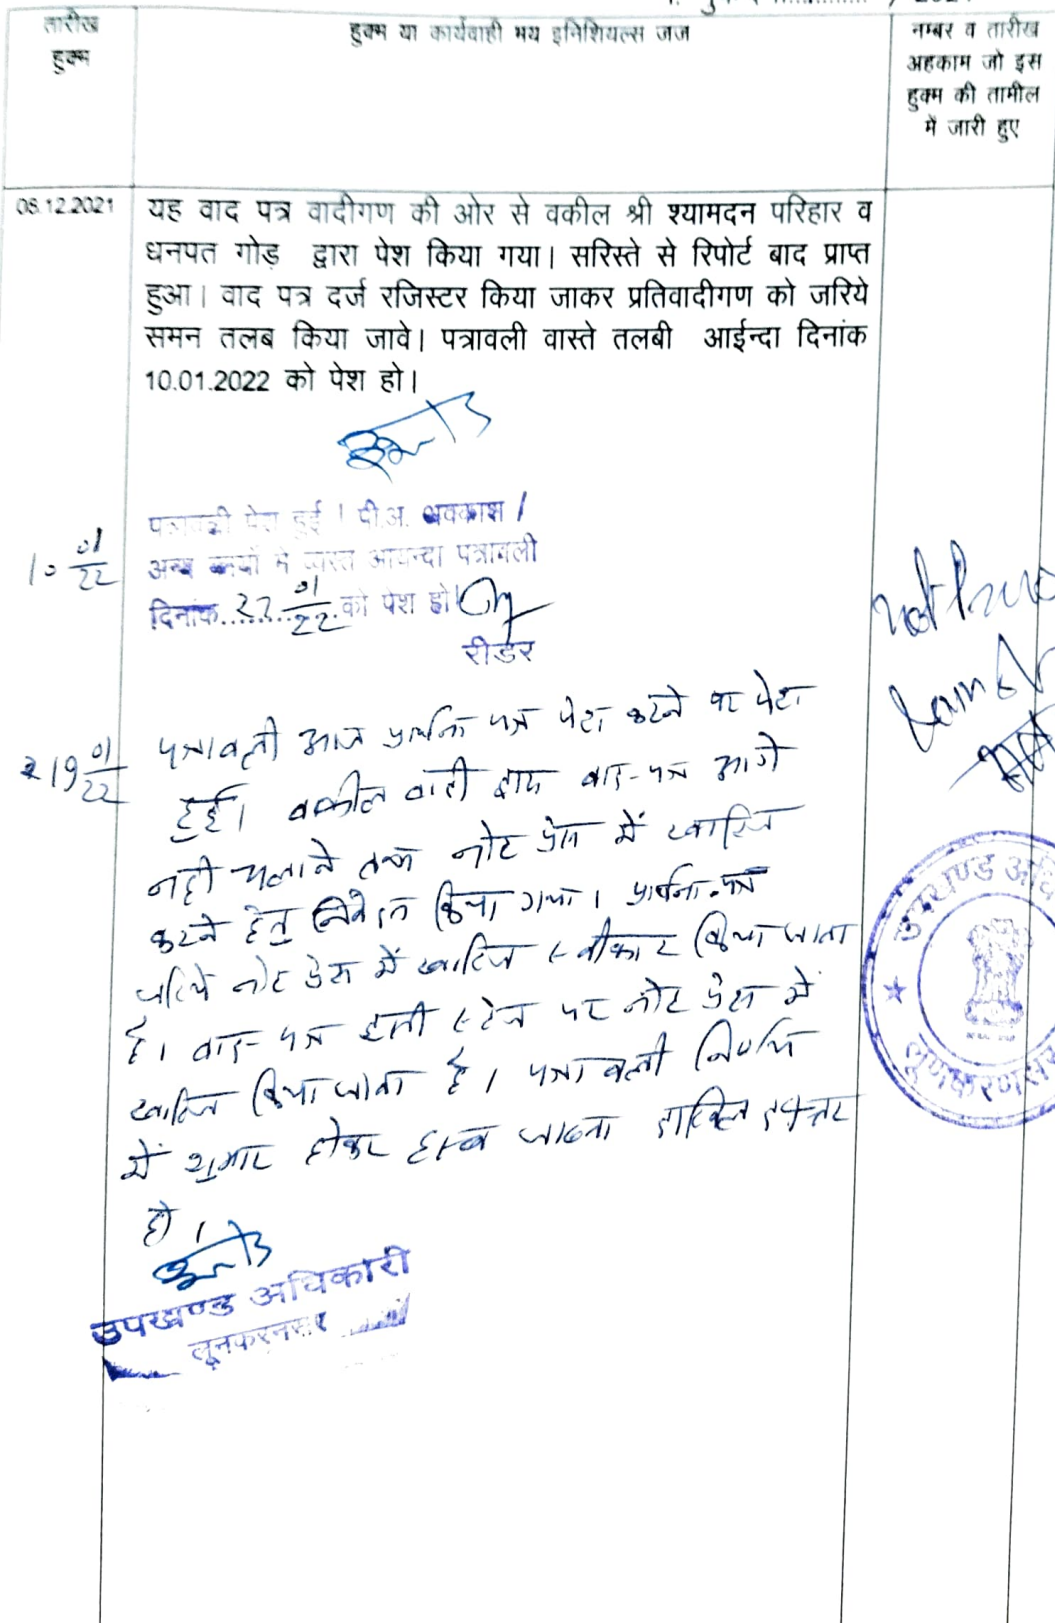 तारीख
हुक्म
हुक्म या कार्यवाही मय इनिशियल्स जज
नम्बर व तारीख
अहकाम जो इस
हुक्म की तामील
में जारी हुए
08.12.2021
यह वाद पत्र वादीगण की ओर से वकील श्री श्यामदन परिहार व
धनपत गोड़ द्वारा पेश किया गया। सरिस्ते से रिपोर्ट बाद प्राप्त
हुआ। वाद पत्र दर्ज रजिस्टर किया जाकर प्रतिवादीगण को जरिये
समन तलब किया जावे। पत्रावली वास्ते तलबी आईन्दा दिनांक
10.01.2022 को पेश हो।
10 01/22
पत्रावली पेश हुई। पी.अ. अवकाश /
अन्य कार्यों में व्यस्त आयन्दा पत्रावली
दिनांक 27 01/22 को पेश हो
रीडर
19 01/22
पत्रावली आज प्रार्थना पत्र पेश करने पर पेश
हुई। वकील वादी द्वारा वाद-पत्र आगे
नही चलाने तथा नोट प्रेस में खारिज
करने हेतु निवेदन किया गया। प्रार्थना-पत्र
जरिये नोट प्रेस में खारिज स्वीकार किया जाता
है। वाद-पत्र इसी स्टेज पर नोट प्रेस में
खारिज किया जाता है। पत्रावली निर्णय
में शुमार होकर हस्ब जाब्ता दाखिल दफ्तर
हो।
उपखण्ड अधिकारी
लूनकरनसर
उपखण्ड अधि
लूणकरणसर